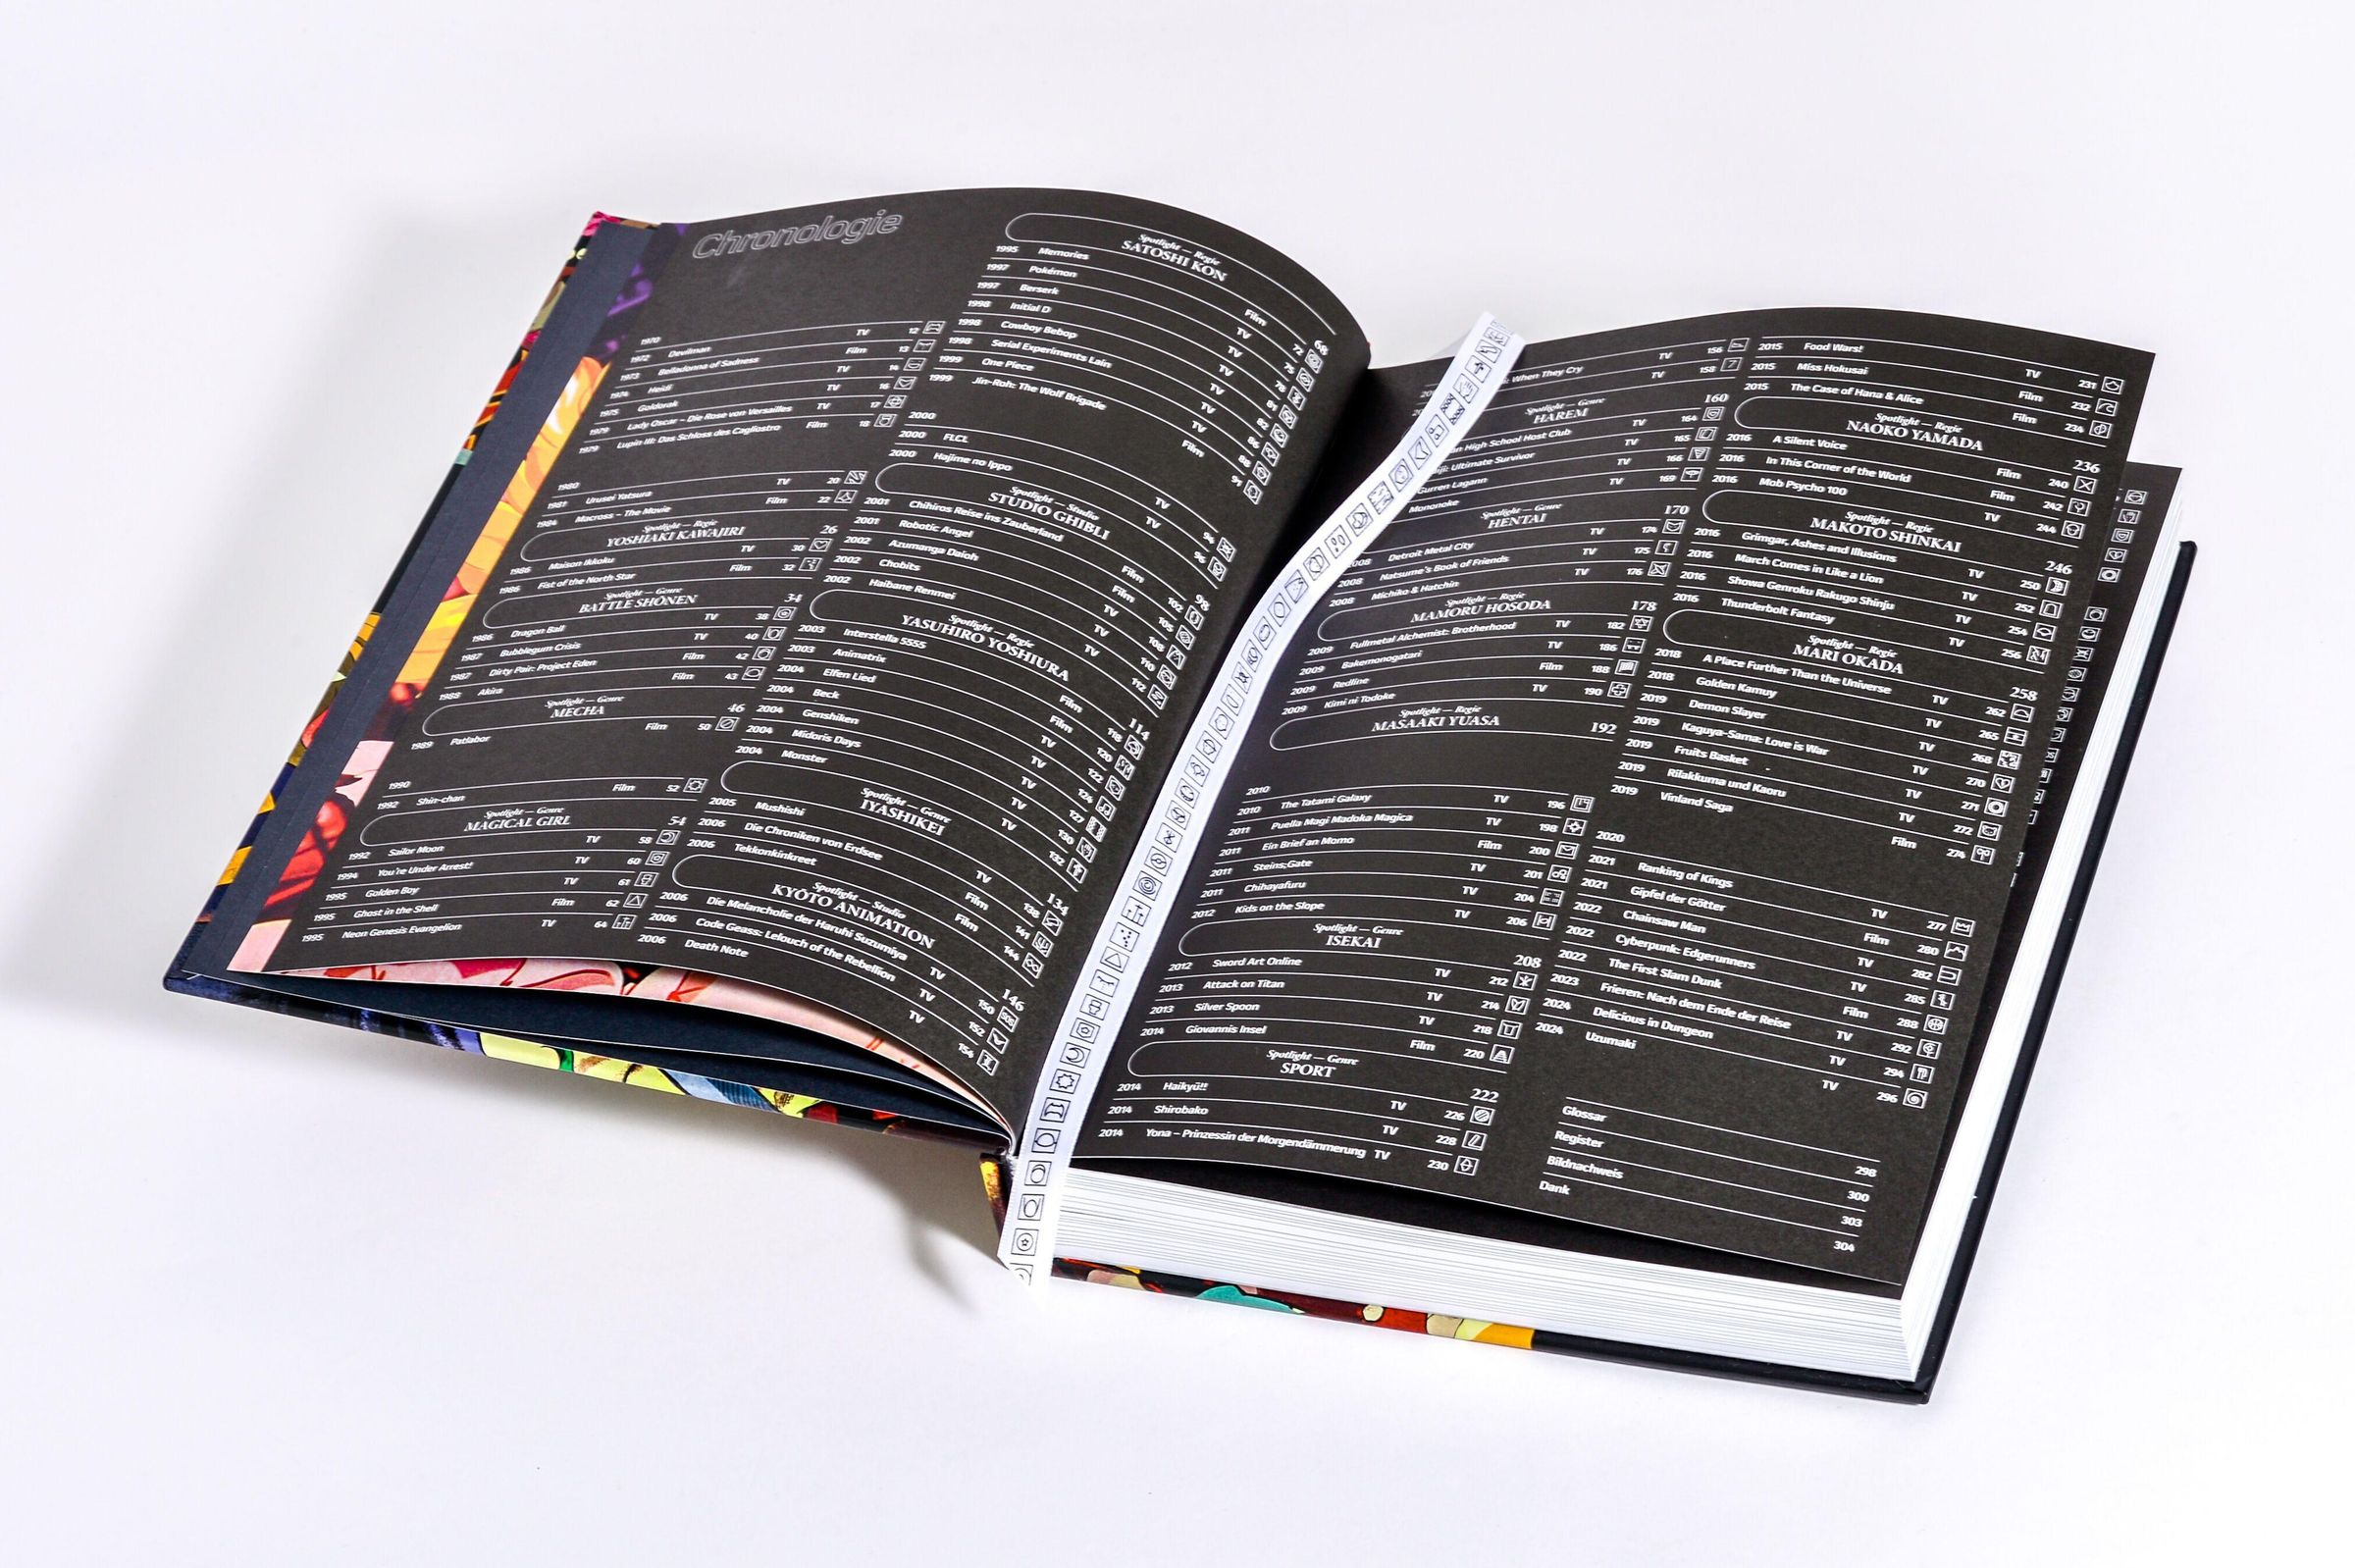 Chronologie
1970
1972 Devilman TV 12
1973 Belladonna of Sadness Film 13
1974 Heidi TV 14
1975 Goldorak TV 16
1979 Lady Oscar – Die Rose von Versailles TV 17
1979 Lupin III: Das Schloss des Cagliostro Film 18
1980
1981 Urusei Yatsura TV 20
1984 Macross – The Movie Film 22
Spotlight — Regie
YOSHIAKI KAWAJIRI 26
1986 Maison Ikkoku TV 30
1986 Fist of the North Star Film 32
Spotlight — Genre
BATTLE SHŌNEN 34
1986 Dragon Ball TV 38
1987 Bubblegum Crisis TV 40
1987 Dirty Pair: Project Eden Film 42
1988 Akira Film 43
Spotlight — Genre
MECHA 46
1989 Patlabor Film 50
1990
1992 Shin-chan Film 52
Spotlight — Genre
MAGICAL GIRL 54
1992 Sailor Moon TV 58
1994 You're Under Arrest! TV 60
1995 Golden Boy TV 61
1995 Ghost in the Shell Film 62
1995 Neon Genesis Evangelion TV 64
Spotlight — Regie
SATOSHI KON 68
1995 Memories Film 72
1997 Pokémon TV 75
1997 Berserk TV 78
1998 Initial D TV 81
1998 Cowboy Bebop TV 82
1998 Serial Experiments Lain TV 86
1999 One Piece TV 88
1999 Jin-Roh: The Wolf Brigade Film 91
2000
2000 FLCL TV 94
2000 Hajime no Ippo TV 96
Spotlight — Studio
STUDIO GHIBLI 98
2001 Chihiros Reise ins Zauberland Film 102
2001 Robotic Angel Film 105
2002 Azumanga Daioh TV 108
2002 Chobits TV 110
2002 Haibane Renmei TV 112
Spotlight — Regie
YASUHIRO YOSHIURA 114
2003 Interstella 5555 Film 118
2003 Animatrix Film 120
2004 Elfen Lied TV 122
2004 Beck TV 124
2004 Genshiken TV 127
2004 Midoris Days TV 130
2004 Monster TV 132
Spotlight — Genre
IYASHIKEI 134
2005 Mushishi TV 138
2006 Die Chroniken von Erdsee Film 141
2006 Tekkonkinkreet Film 144
Spotlight — Studio
KYŌTO ANIMATION 146
2006 Die Melancholie der Haruhi Suzumiya TV 150
2006 Code Geass: Lelouch of the Rebellion TV 152
2006 Death Note TV 154
TV 156
When They Cry TV 158
Spotlight — Genre
HAREM 160
High School Host Club TV 164
Ultimate Survivor TV 165
Gurren Lagann TV 166
Mononoke TV 169
Spotlight — Genre
HENTAI 170
2008 Detroit Metal City TV 174
2008 Natsume's Book of Friends TV 175
2008 Michiko & Hatchin TV 176
Spotlight — Regie
MAMORU HOSODA 178
2009 Fullmetal Alchemist: Brotherhood TV 182
2009 Bakemonogatari TV 186
2009 Redline Film 188
2009 Kimi ni Todoke TV 190
Spotlight — Regie
MASAAKI YUASA 192
2010
2010 The Tatami Galaxy TV 196
2011 Puella Magi Madoka Magica TV 198
2011 Ein Brief an Momo Film 200
2011 Steins;Gate TV 201
2011 Chihayafuru TV 204
2012 Kids on the Slope TV 206
Spotlight — Genre
ISEKAI 208
2012 Sword Art Online TV 212
2013 Attack on Titan TV 214
2013 Silver Spoon TV 218
2014 Giovannis Insel Film 220
Spotlight — Genre
SPORT 222
2014 Haikyū!! TV 226
2014 Shirobako TV 228
2014 Yona – Prinzessin der Morgendämmerung TV 230
2015 Food Wars! TV 231
2015 Miss Hokusai Film 232
2015 The Case of Hana & Alice Film 234
Spotlight — Regie
NAOKO YAMADA 236
2016 A Silent Voice Film 240
2016 In This Corner of the World Film 242
2016 Mob Psycho 100 TV 244
Spotlight — Regie
MAKOTO SHINKAI 246
2016 Grimgar, Ashes and Illusions TV 250
2016 March Comes in Like a Lion TV 252
2016 Showa Genroku Rakugo Shinju TV 254
2016 Thunderbolt Fantasy TV 256
Spotlight — Regie
MARI OKADA 258
2018 A Place Further Than the Universe TV 262
2018 Golden Kamuy TV 265
2019 Demon Slayer TV 268
2019 Kaguya-Sama: Love is War TV 270
2019 Fruits Basket TV 271
2019 Rilakkuma und Kaoru TV 272
2019 Vinland Saga Film 274
2020
2021 Ranking of Kings TV 277
2021 Gipfel der Götter Film 280
2022 Chainsaw Man TV 282
2022 Cyberpunk: Edgerunners TV 285
2022 The First Slam Dunk Film 288
2023 Frieren: Nach dem Ende der Reise TV 292
2024 Delicious in Dungeon TV 294
2024 Uzumaki TV 296
Glossar 298
Register 300
Bildnachweis 303
Dank 304